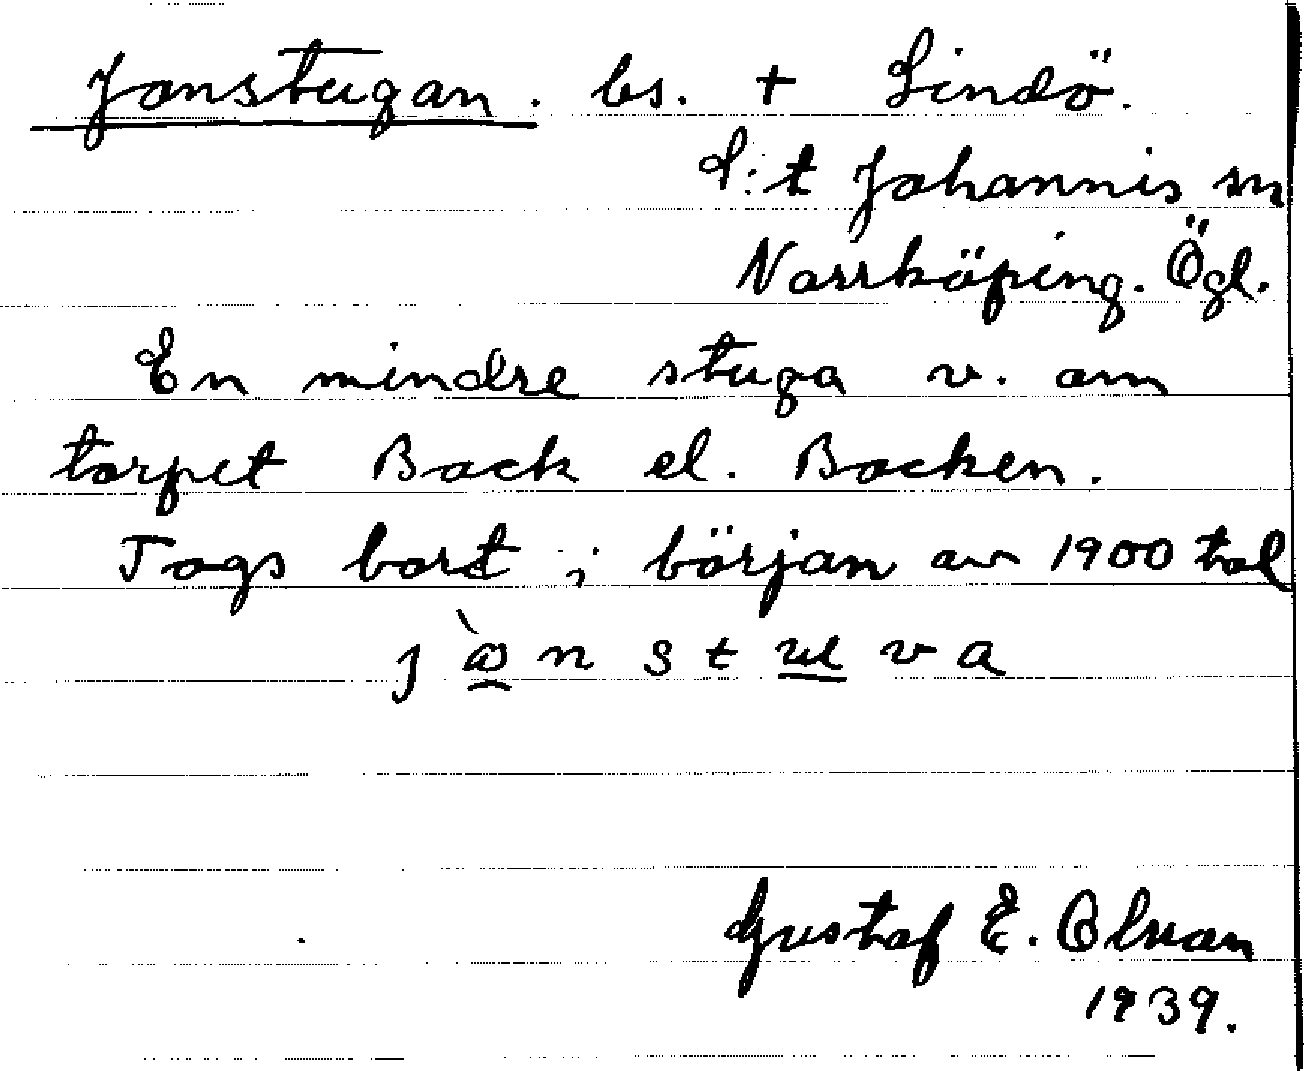 Jonstugan. bs. + Lindö.
S:t Johannis sn
Norrköping. Ögl.
En mindre stuga v. om
torpet Back el. Backen.
Togs bort i början av 1900 tal
Gustaf E. Olsson
1939.